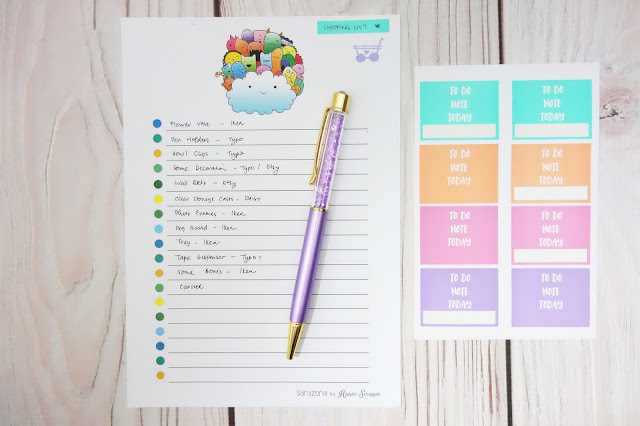 SHOPPING LIST
Flower Vase - Ikea
Pen Holders - Typo
Bowl Clips - Typo
Some Decoration - Typo / Etsy
Wall Arts - Etsy
Clear Storage Cases - Daiso
Photo Frames - Ikea
Peg Board - Ikea
Tray - Ikea
Tape Dispenser - Typo?
Some Boxes - Ikea
for
TO DO
NOTE
TODAY
TO DO
NOTE
TODAY
TO DO
NOTE
TODAY
TO DO
NOTE
TODAY
TO DO
NOTE
TODAY
TO DO
NOTE
TODAY
TO DO
NOTE
TODAY
TO DO
NOTE
TODAY